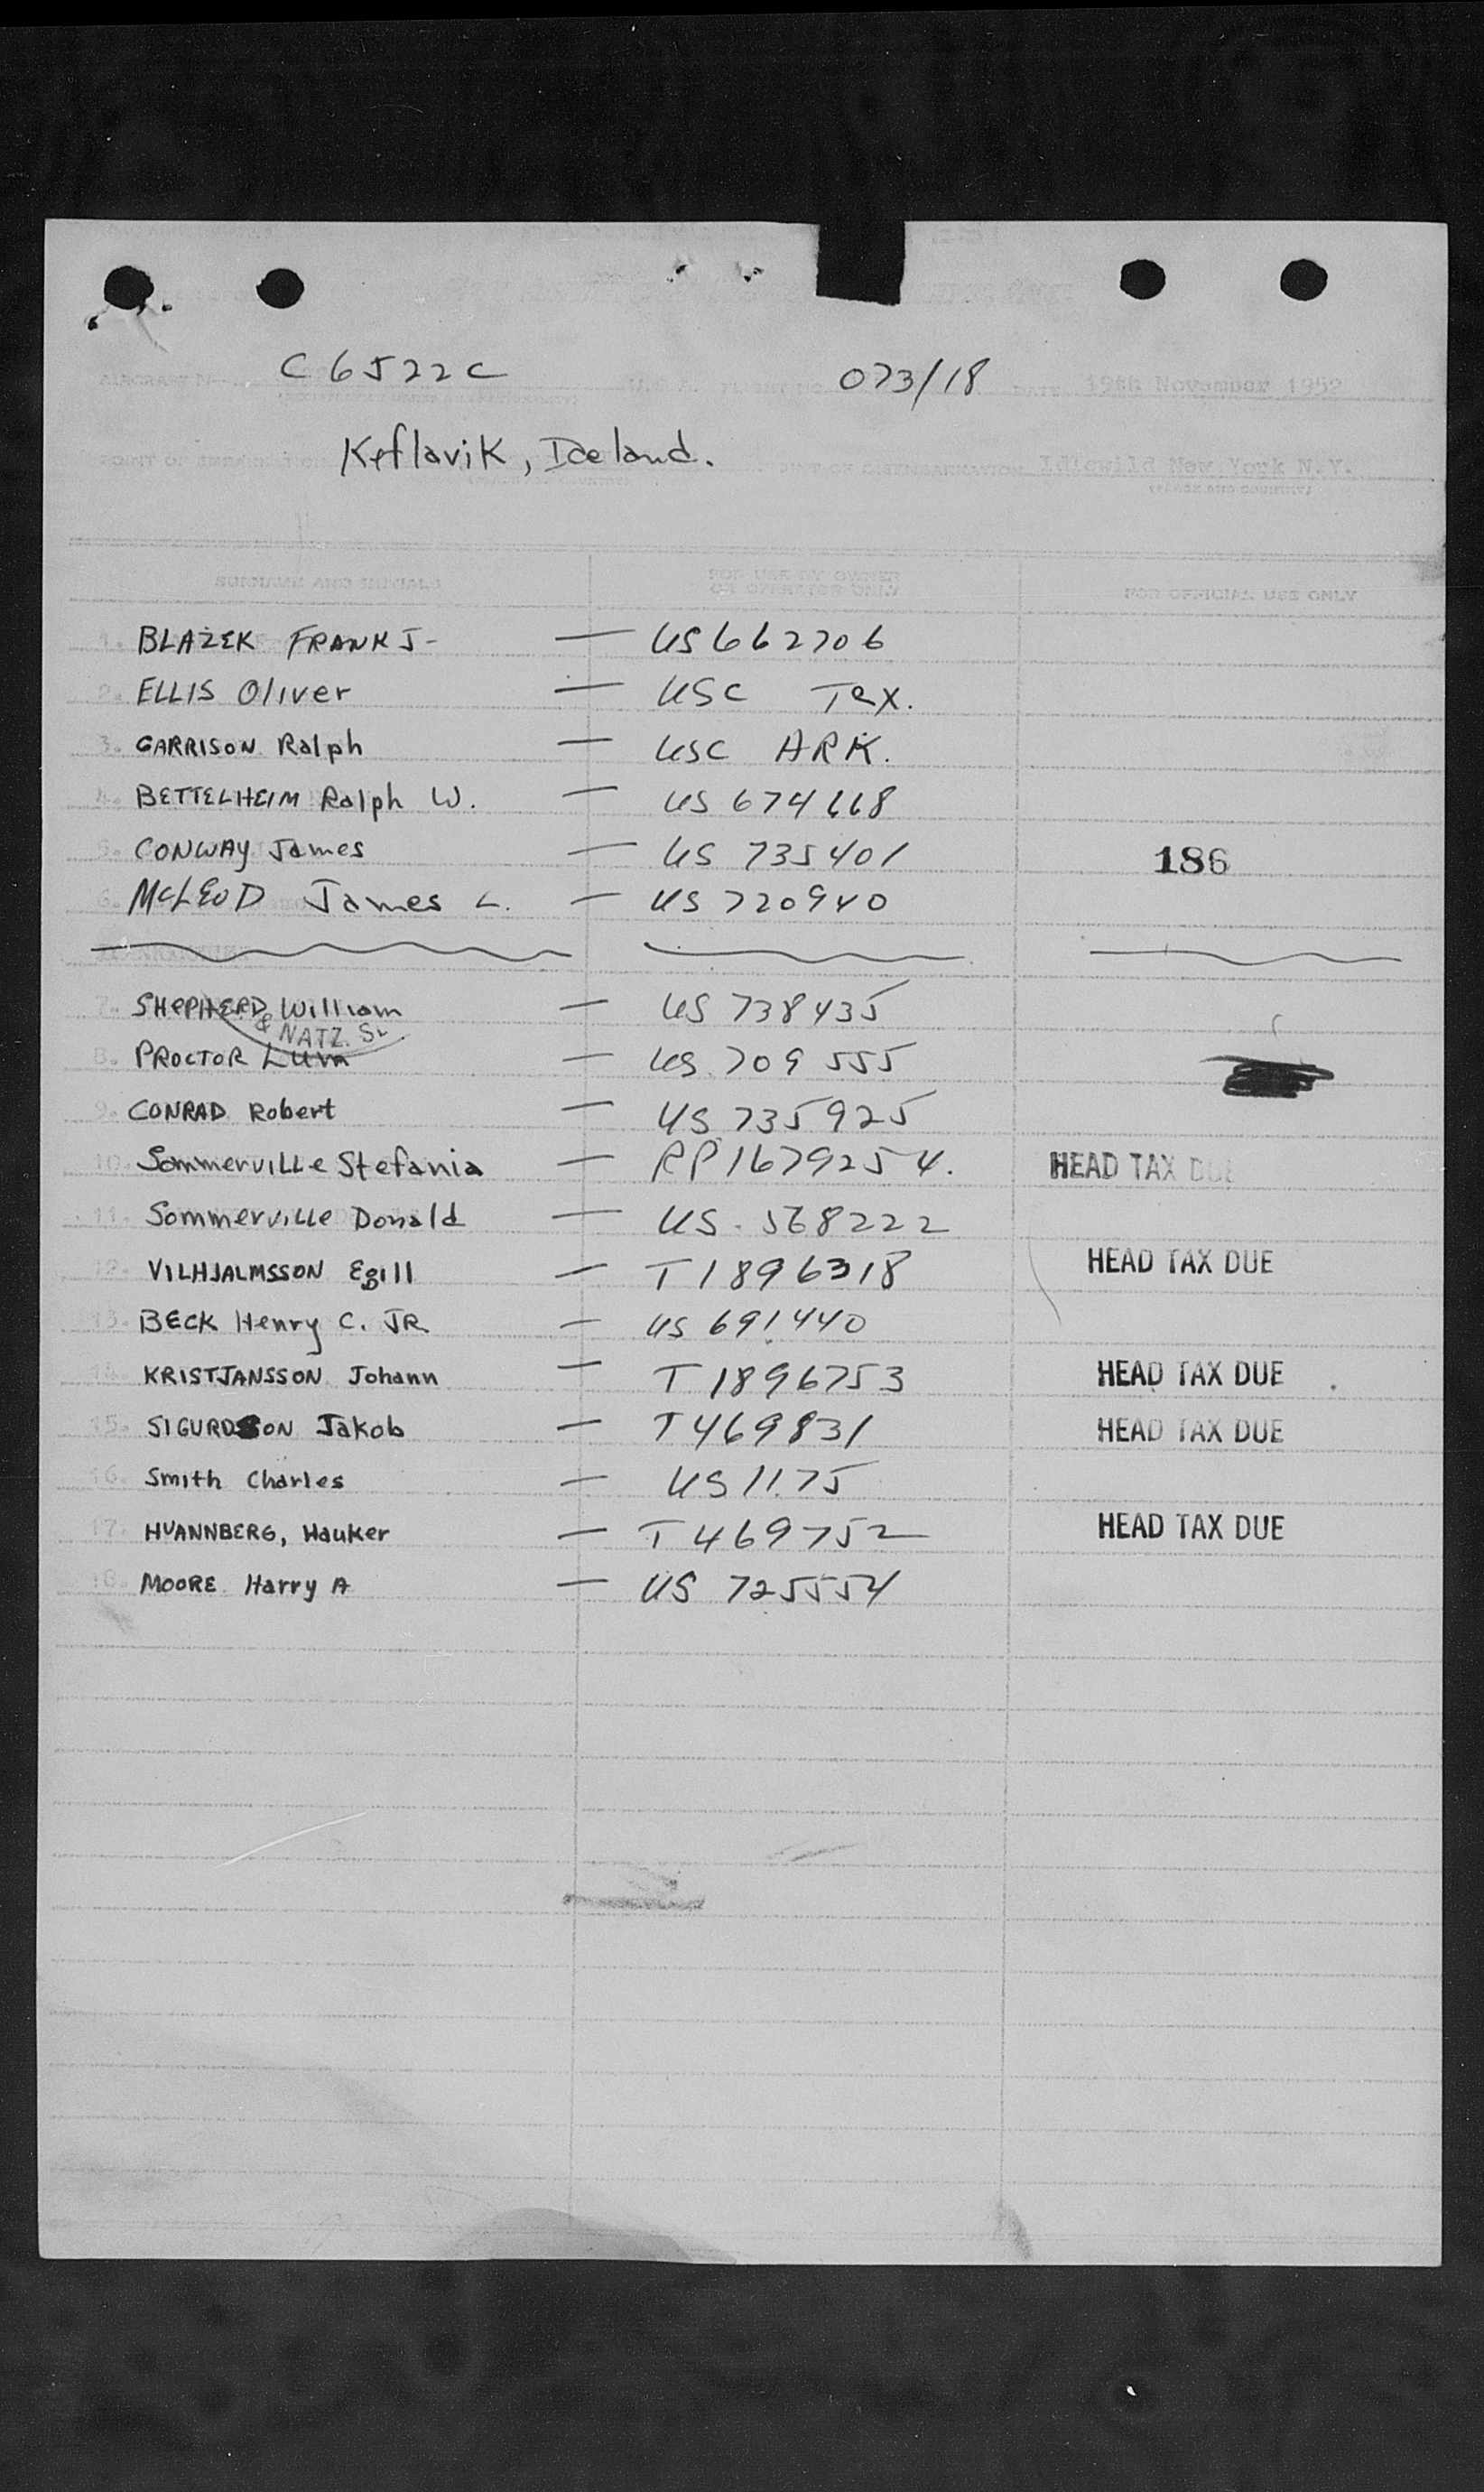 C6522C 073/18
AIRCRAFT N U.S.A. FLIGHT NO. DATE 19th November 1952
Keflavik, Iceland.
POINT OF EMBARKATION POINT OF DISEMBARKATION Idlewild New York N.Y.
(PLACE AND COUNTRY) (PLACE AND COUNTRY)
SURNAME AND INITIALS FOR USE BY OWNER OR OPERATOR ONLY FOR OFFICIAL USE ONLY
1. BLAZEK FRANK J- — US 662706
2. ELLIS Oliver — USC Tex.
3. GARRISON Ralph — USC ARK.
4. BETTELHEIM Ralph W. — US 674668
5. CONWAY James — US 735401 186
6. McLEOD James L. — US 720940
7. SHEPHERD William — US 738435
& NATZ. SL
8. PROCTOR Lum — US 709555
9. CONRAD Robert — US 735925
10. Sommerville Stefania — RP1679254. HEAD TAX DUE
11. Sommerville Donald — US. 568222
12. VILHJALMSSON Egill — T1896318 HEAD TAX DUE
13. BECK Henry C. JR — US 691440
14. KRISTJANSSON Johann — T1896753 HEAD TAX DUE
15. SIGURDSSON Jakob — T469831 HEAD TAX DUE
16. Smith Charles — US 1175
17. HVANNBERG, Hauker — T469752 HEAD TAX DUE
18. MOORE Harry A — US 725554